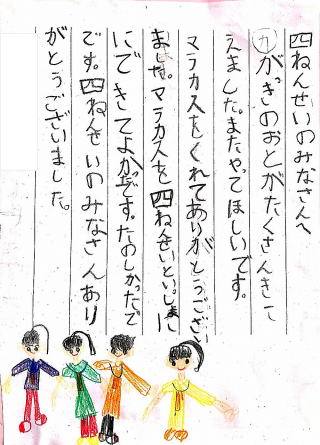 四ねんせいのみなさんへ
がっきのおとがたくさんきこ
えました。またやってほしいです。
マラカスをくれてありがとうござい
ました。マラカスを四ねんせいといっしょに
にできてよかったです。たのしかったで
です。四ねんせいのみなさんあり
がとうございました。